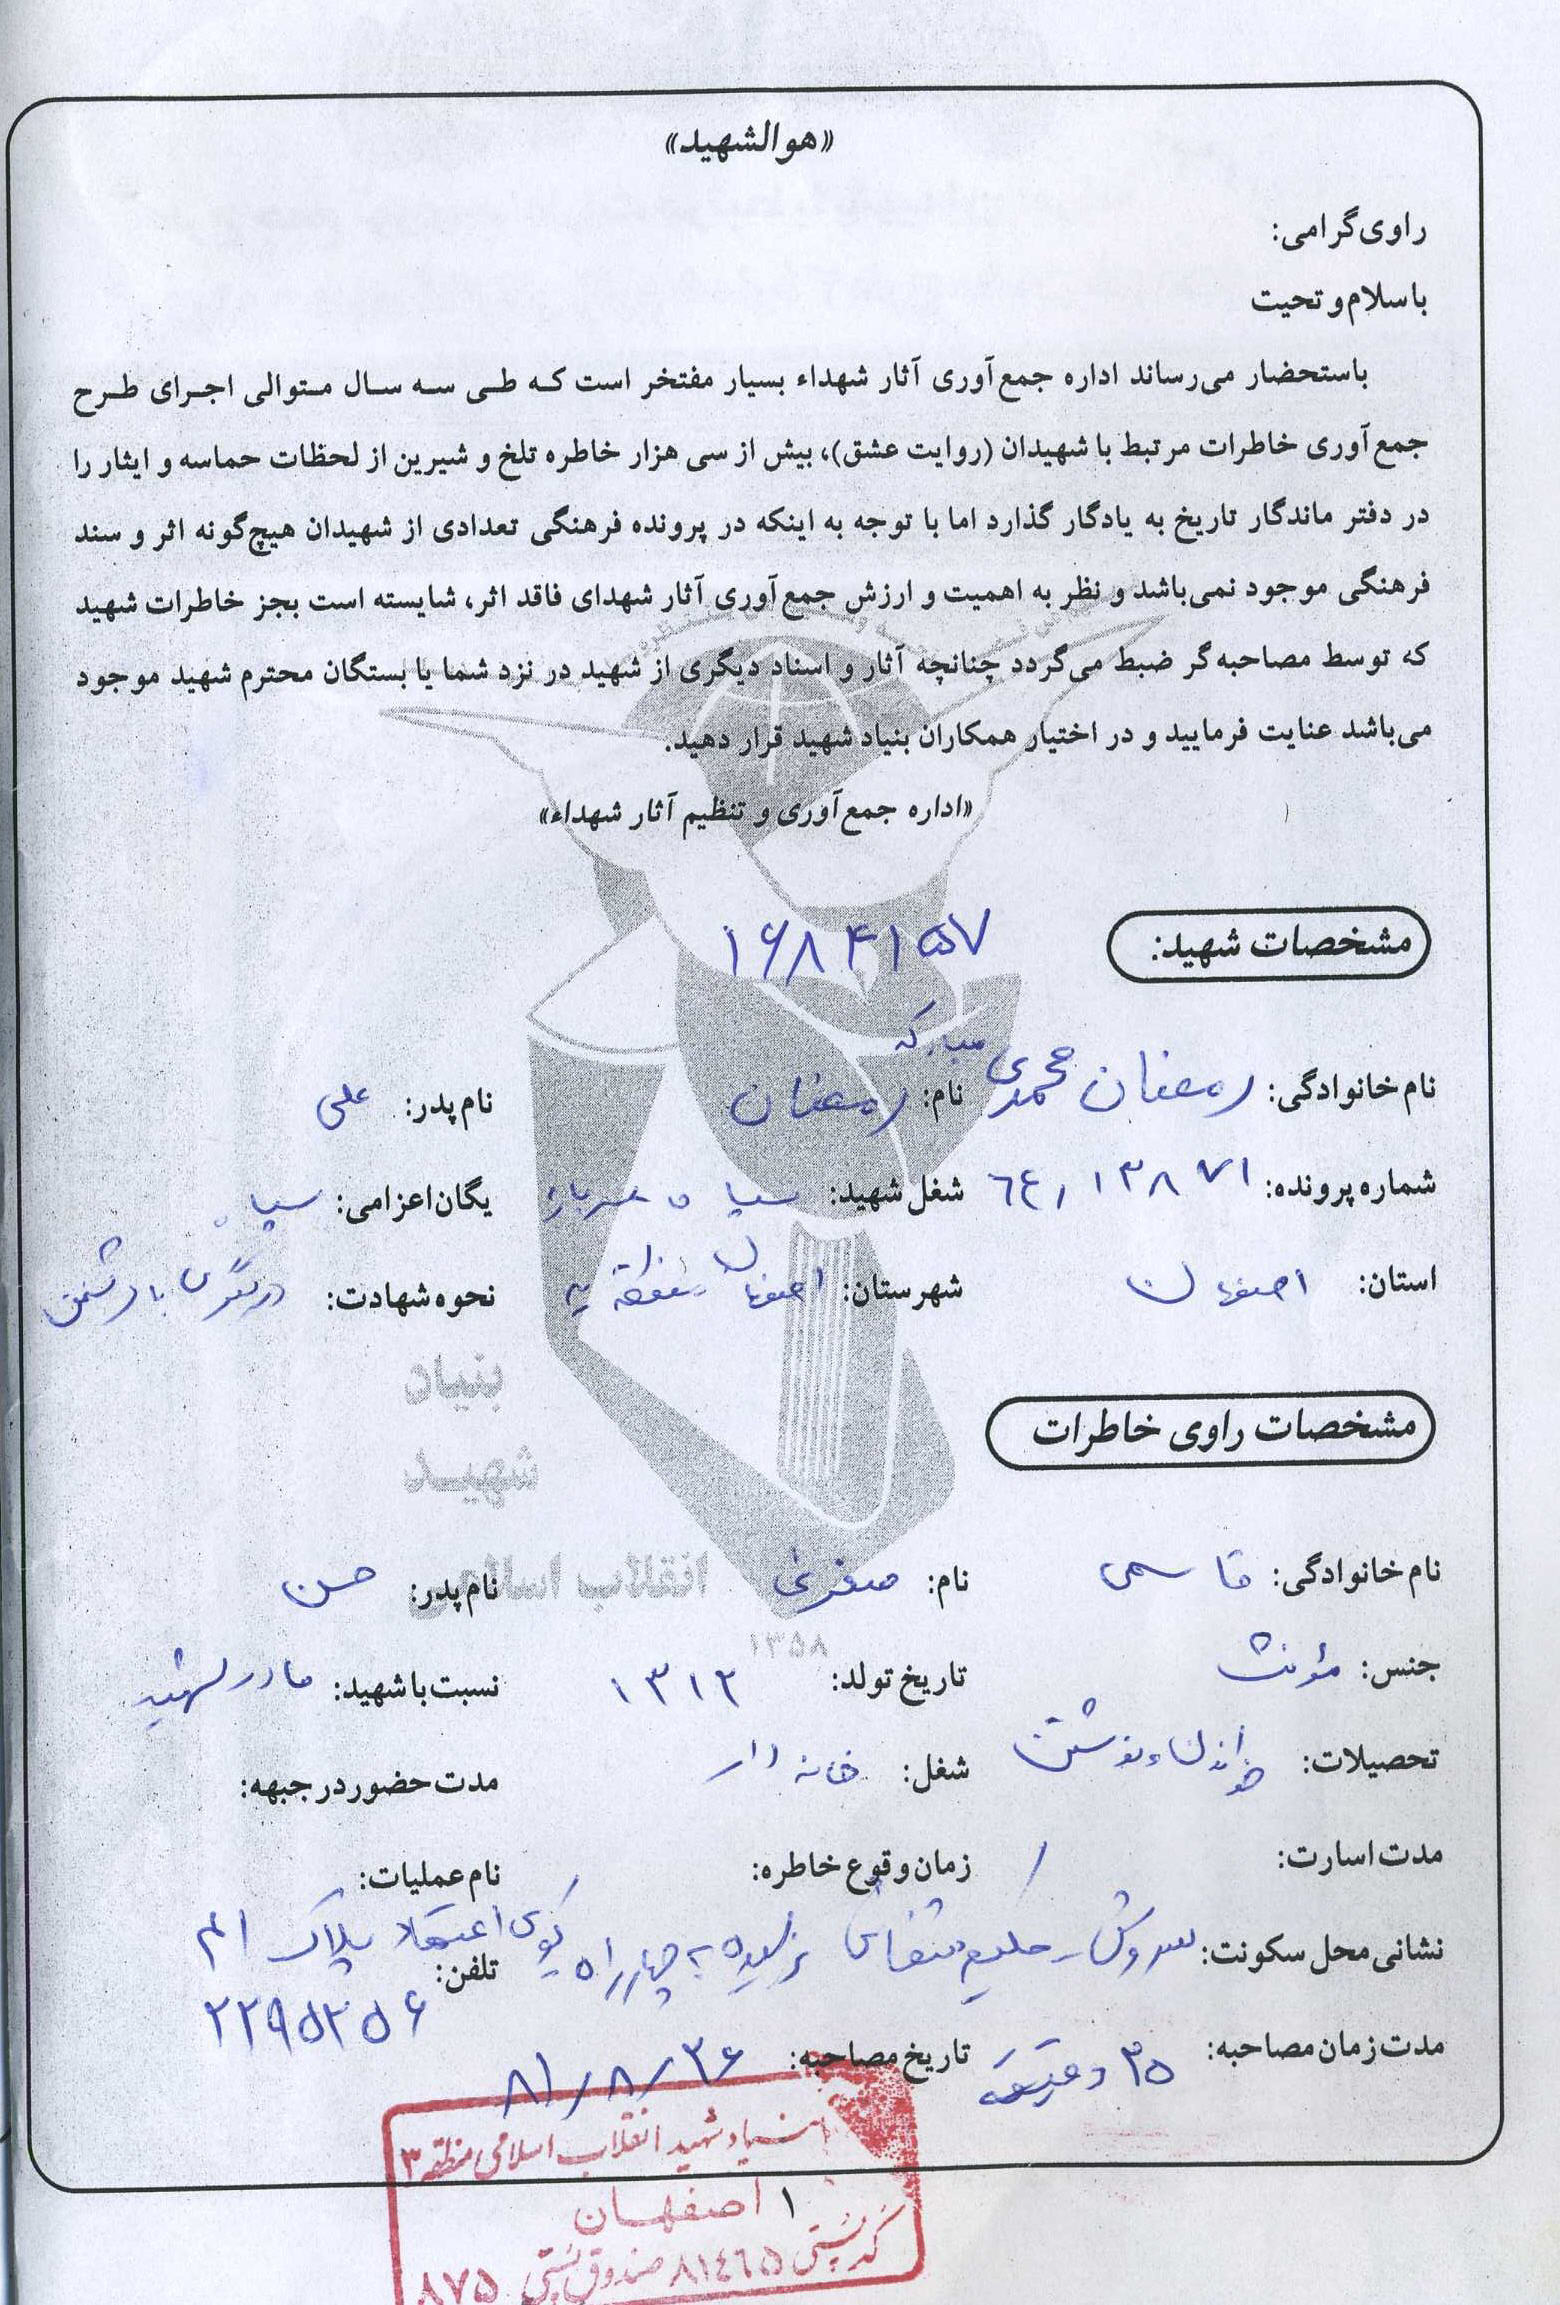 «هوالشهید»
راوی گرامی:
با سلام و تحیت
باستحضار می‌رساند اداره جمع‌آوری آثار شهداء بسیار مفتخر است که طی سه سال متوالی اجرای طرح
جمع‌آوری خاطرات مرتبط با شهیدان (روایت عشق)، بیش از سی هزار خاطره تلخ و شیرین از لحظات حماسه و ایثار را
در دفتر ماندگار تاریخ به یادگار گذارد اما با توجه به اینکه در پرونده فرهنگی تعدادی از شهیدان هیچ‌گونه اثر و سند
فرهنگی موجود نمی‌باشد و نظر به اهمیت و ارزش جمع‌آوری آثار شهدای فاقد اثر، شایسته است بجز خاطرات شهید
که توسط مصاحبه‌گر ضبط می‌گردد چنانچه آثار و اسناد دیگری از شهید در نزد شما یا بستگان محترم شهید موجود
می‌باشد عنایت فرمایید و در اختیار همکاران بنیاد شهید قرار دهید.
«اداره جمع‌آوری و تنظیم آثار شهداء»
مشخصات شهید: ۱۶۸۴۱۵۷
نام خانوادگی: رمضان محمدی مبارکه نام: رمضان نام پدر: علی
شماره پرونده: ۶۴٫۱۳۸۷۱ شغل شهید: سرباز یگان اعزامی: سپاه
استان: اصفهان شهرستان: اصفهان نحوه شهادت: درگیری با دشمن
بنیاد
شهید
مشخصات راوی خاطرات
نام خانوادگی: قاسمی نام: صغری نام پدر: حسن
انقلاب اسلامی
۱۳۵۸
جنس: مؤنث تاریخ تولد: ۱۳۱۲ نسبت با شهید: مادر شهید
تحصیلات: خواندن و نوشتن شغل: خانه دار مدت حضور در جبهه:
مدت اسارت: / زمان وقوع خاطره: نام عملیات:
نشانی محل سکونت: سروش - حکیم شفائی نرسیده به چهارراه کوی اعتماد پلاک تلفن: ۲۲۹۵۲۵۶
مدت زمان مصاحبه: ۳۵ دقیقه تاریخ مصاحبه: ۸۱/۸/۲۶
بنیاد شهید انقلاب اسلامی منطقه ۳
۱ اصفهان
کد پستی ۸۱۴۶۵ صندوق پستی ۸۷۵